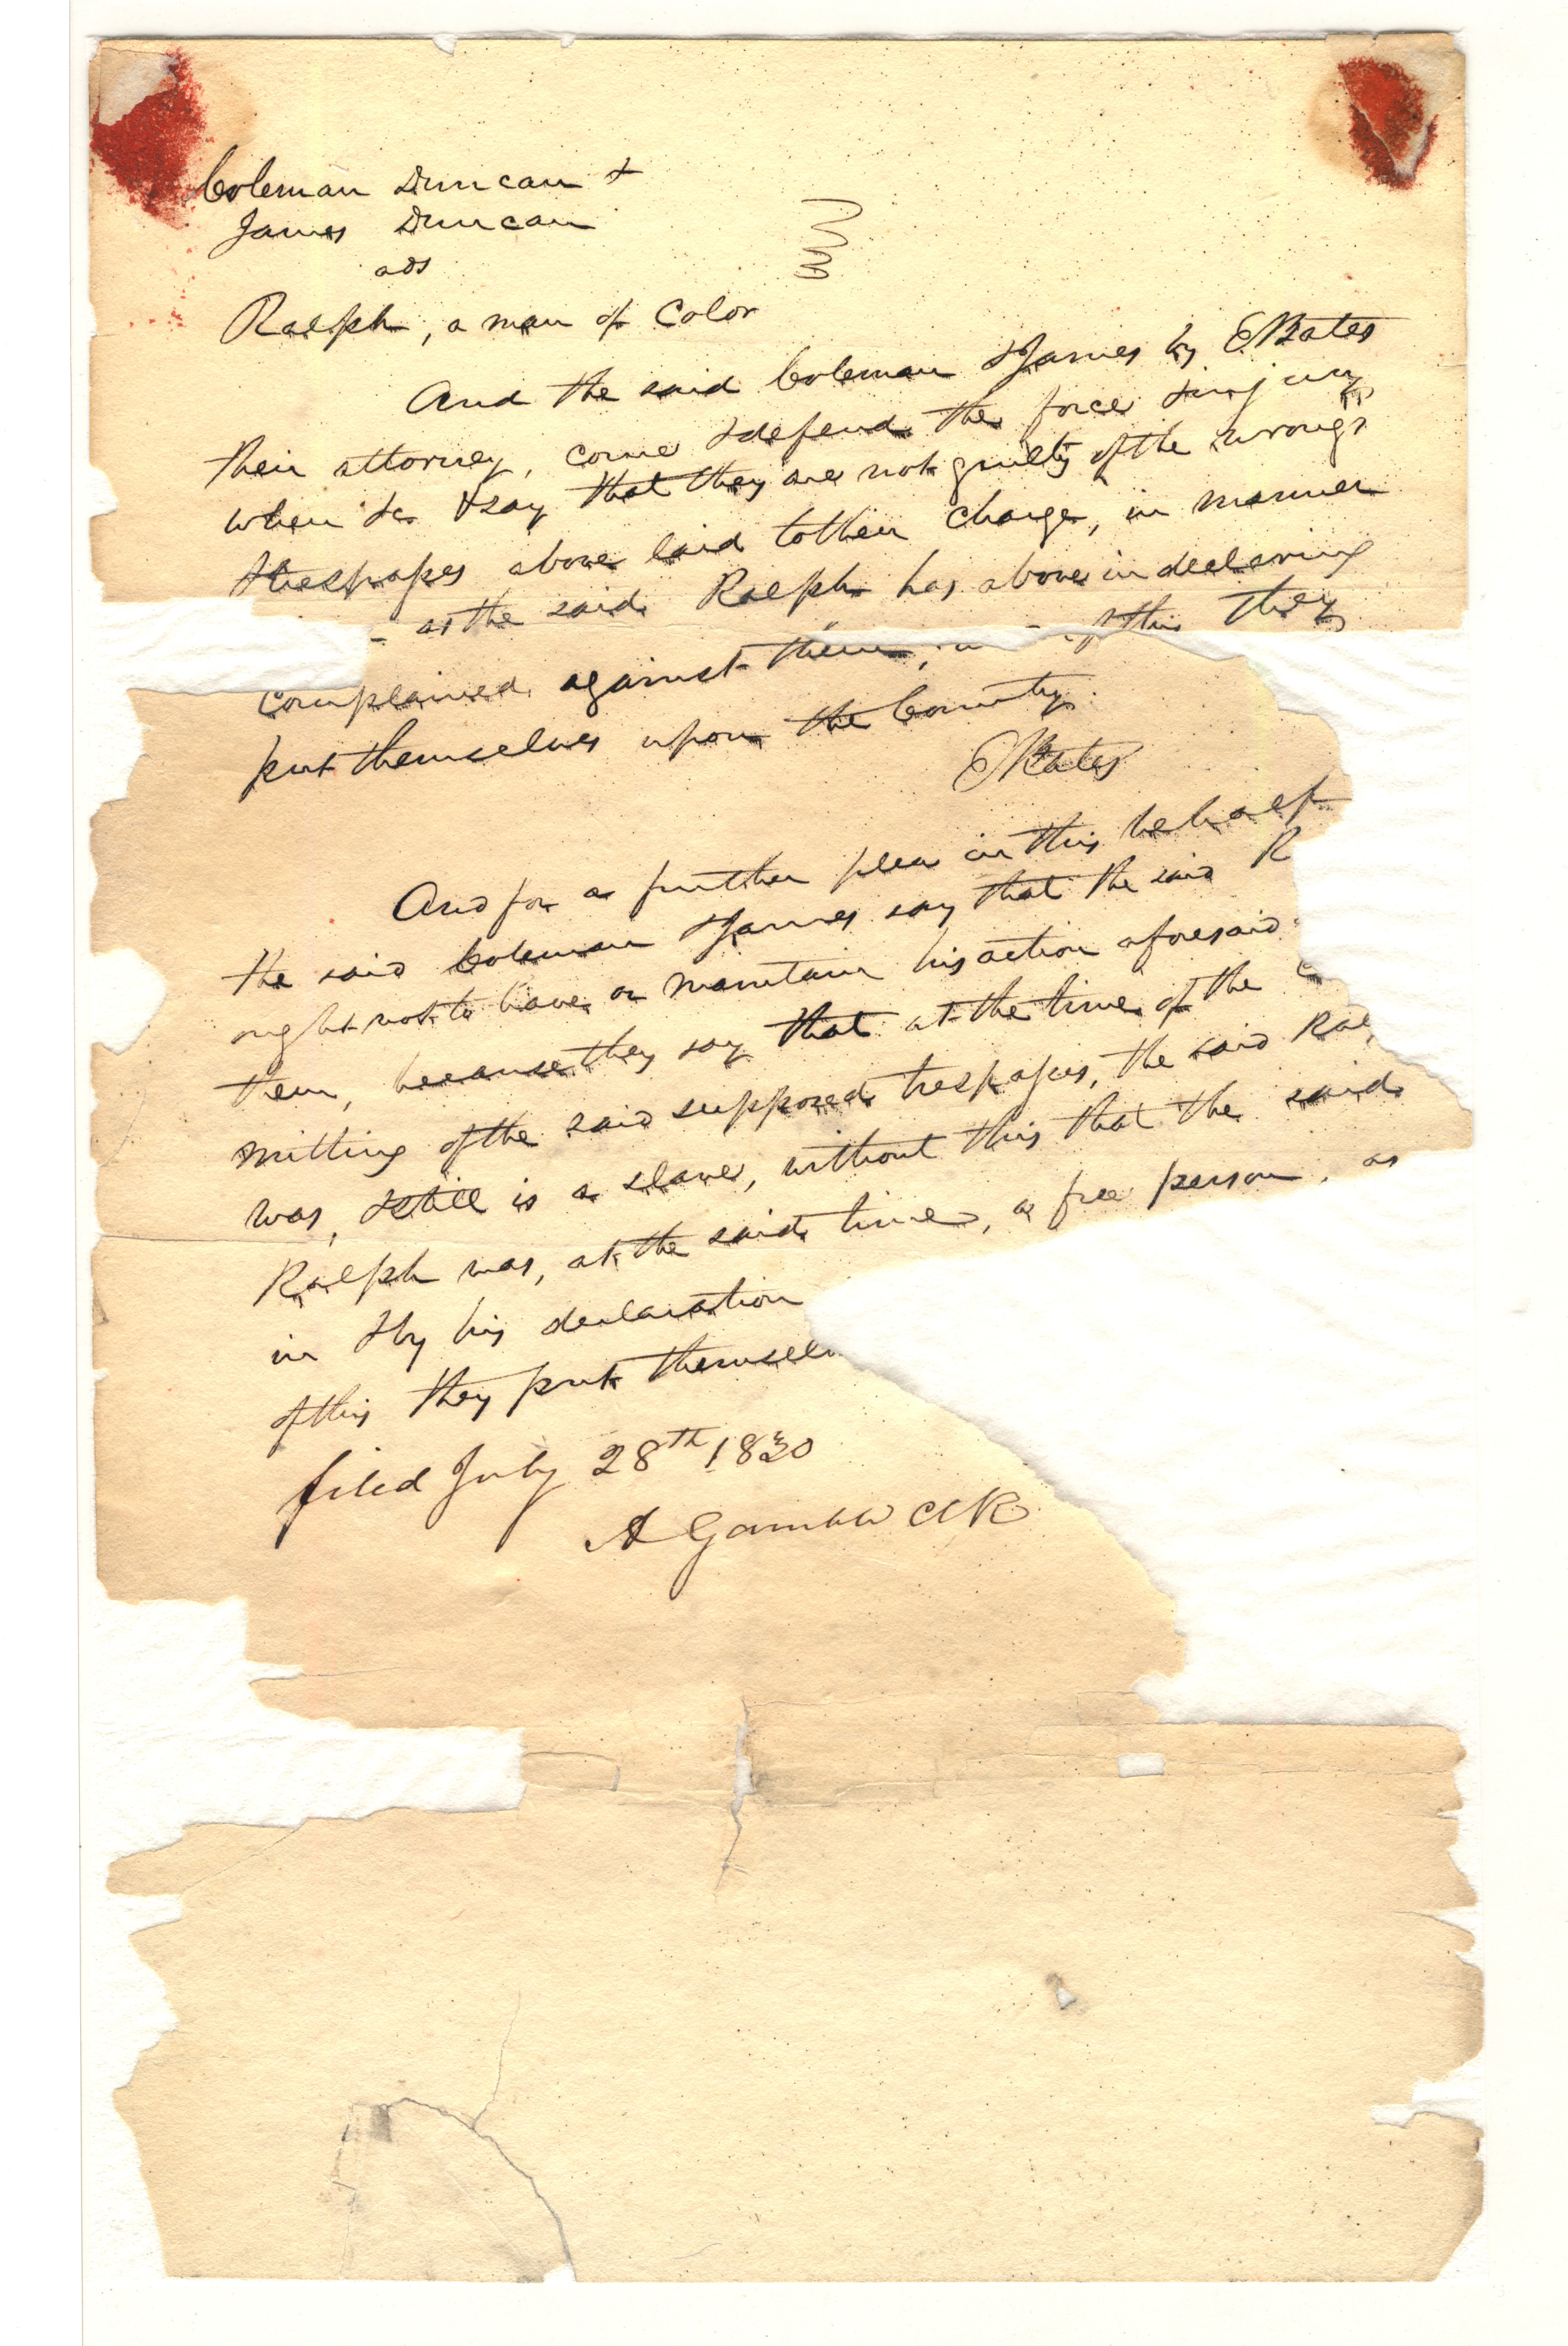 Coleman Duncan &
James Duncan
ads
Ralph, a man of Color
And the said Coleman & James by E Bates
their attorney, come & defend the force & injury
when &c & say that they are not guilty of the wrongs
& trespasses above laid to their charge, in manner
as the said Ralph has above in declaring
complained against them, of this they
put themselves upon the County.
E Bates
And for a further plea in this behalf
the said Coleman & James say that the said R
ought not to have or maintain his action aforesaid
them, because they say that at the time of the
mitting of the said supposed trespasses, the said Ral
was, & still is a slave, without this that the said
Ralph was, at the said time, a free person, as
in & by his declaration
of this they put themselv
filed July 28th 1830
A Gamble Clk